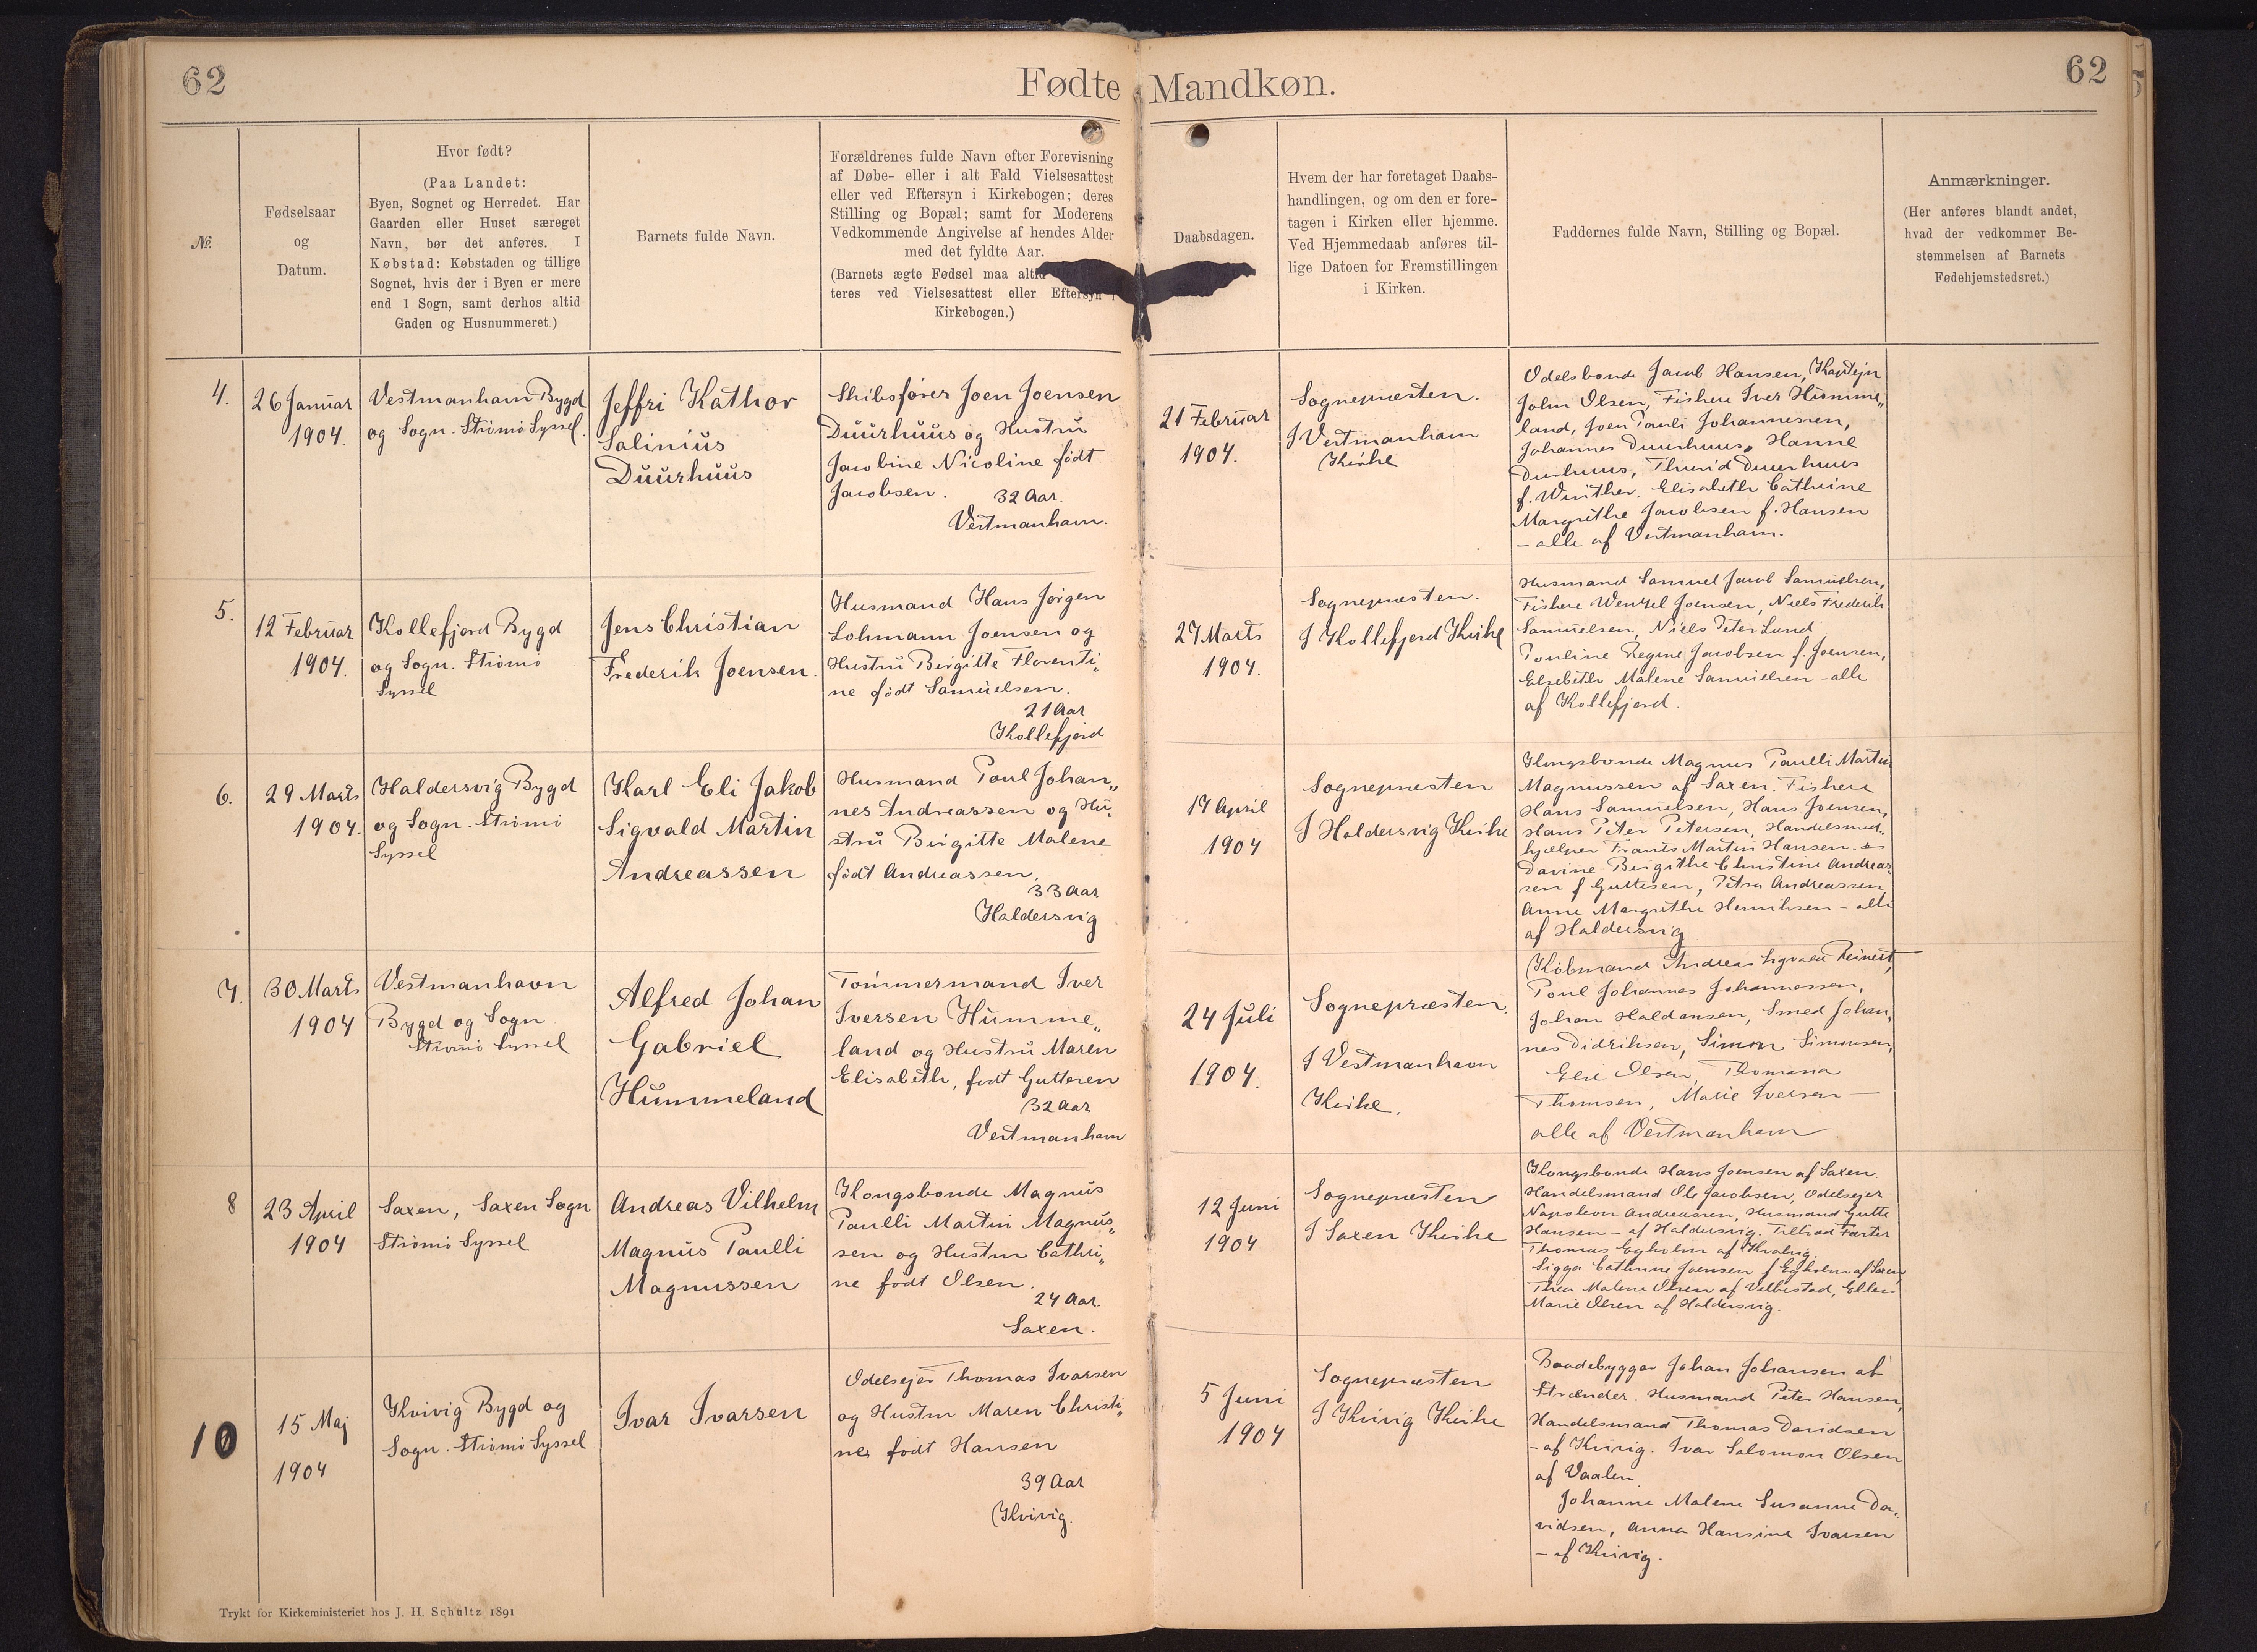 62
Fødte Mandkøn.
62
№
Fødselsaar
og
Datum.
Hvor født?
(Paa Landet:
Byen, Sognet og Herredet. Har
Gaarden eller Huset særeget
Navn, bør det anføres. I
Købstad: Købstaden og tillige
Sognet, hvis der i Byen er mere
end 1 Sogn, samt derhos altid
Gaden og Husnummeret.)
Barnets fulde Navn.
Forældrenes fulde Navn efter Forevisning
af Døbe- eller i alt Fald Vielsesattest
eller ved Eftersyn i Kirkebogen; deres
Stilling og Bopæl; samt for Moderens
Vedkommende Angivelse af hendes Alder
med det fyldte Aar.
(Barnets ægte Fødsel maa
teres ved Vielsesattest eller Eftersyn i
Kirkebogen.)
Daabsdagen.
Hvem der har foretaget Daabs-
handlingen, og om den er fore-
tagen i Kirken eller hjemme.
Ved Hjemmedaab anføres til-
lige Datoen for Fremstillingen
i Kirken.
Faddernes fulde Navn, Stilling og Bopæl.
Anmærkninger.
(Her anføres blandt andet,
hvad der vedkommer Be-
stemmelsen af Barnets
Fødehjemstedsret.)
4.
26 Januar
1904.
Vestmanhavn Bygd
og Sogn. Strömö Syssel.
Jeffri Kathor
Salinius
Duurhuus
Skibsfører Joen Joensen
Duurhuus og Hustru
Jacobine Nicoline født
Jacobsen. 32 Aar.
Vestmanhavn.
21 Februar
1904.
Sognepræsten.
I Vestmanhavn
Kirke
Odelsbonde Jacob Hansen, Kaptejn
John Olsen, Fiskere Iver Humme„
land, Joen Pauli Johannessen,
Johannes Duurhuus, Hanne
Duurhuus, Thurid Duurhuus
f. Winther. Elisabeth Cathrine
Margrethe Jacobsen f. Hansen
– alle af Vestmanhavn.
5.
12 Februar
1904.
Kollefjord Bygd
og Sogn. Strömö
Syssel
Jens Christian
Frederik Joensen.
Husmand Hans Jørgen
Lohmann Joensen og
Hustru Birgitte Florenti„
ne født Samuelsen.
21 Aar
Kollefjord
27 Marts
1904.
Sognepræsten.
I Kollefjord Kirke
Husmand Samuel Jacob Samuelsen,
Fiskere Wenzel Joensen, Niels Frederik
Samuelsen, Niels Peter Lund
Pouline Regine Jacobsen f. Joensen,
Elsebeth Malene Samuelsen – alle
af Kollefjord.
6.
29 Marts
1904.
Haldersvig Bygd
og Sogn. Strömö
Syssel
Karl Eli Jakob
Sigvald Martin
Andreassen
Husmand Poul Johan„
nes Andreassen og Hu„
stru Birgitte Malene
født Andreassen.
33 Aar
Haldersvig
17 April
1904
Sognepræsten
I Haldersvig Kirke
Kongsbonde Magnus Paulli Martin
Magnussen af Saxen. Fiskere
Hans Samuelsen, Hans Joensen,
Hans Peter Petersen, Handelsmed„
hjælper Frants Martin Hansen.
Davine Birgithe Christine Andreas„
sen f Guttesen, Petra Andreassen
Anne Margrethe Henriksen – alle
af Haldersvig
7.
30 Marts
1904
Vestmanhavn
Bygd og Sogn
Strömö Syssel
Alfred Johan
Gabriel
Hummeland
Tömmermand Iver
Iversen Humme„
land og Hustru Maren
Elisabeth, født Guttesen
32 Aar
Vestmanhavn
24 Juli
1904.
Sognepræsten.
I Vestmanhavn
Kirke.
Købmand Andreas Sigvald Reinert,
Poul Johannes Johannessen,
Johan Haldansen, Smed Johan„
nes Didriksen, Simon Simonsen,
Else Olsen, Thomasa
Thomsen, Marie Iversen –
alle af Vestmanhavn.
8
23 April
1904
Saxen, Saxen Sogn
Strömö Syssel
Andreas Vilhelm
Magnus Paulli
Magnussen
Kongsbonde Magnus
Paulli Martin Magnus„
sen og Hustru Cathri„
ne født Olsen.
24 Aar.
Saxen.
12 Juni
1904
Sognepræsten
I Saxen Kirke
Kongsbonde Hans Joensen af Saxen.
Handelsmand Ole Jacobsen, Odelsejer
Napoleon Andreassen, Husmand Gutte
Hansen – af Haldersvig.
Thomas Egholm af Kvalvig.
Sigga Cathrine Joensen f Egholm af Saxen
Thea Malene Olsen af Velbestad, Ellen
Marie Olsen af Haldersvig.
10
15 Maj
1904
Kvivig Bygd og
Sogn. Strömö Syssel
Ivar Ivarsen
Odelsejer Thomas Ivarsen
og Hustru Maren Christi„
ne, født Hansen
39 Aar
Kvivig.
5 Juni
1904
Sognepræsten
I Kvivig Kirke
Baadebygger Johan Johansen af
Strænder. Husmand Peter Hansen,
Handelsmand Thomas Davidsen
– af Kvivig. Ivar Salomon Olsen
af Vaalen.
Johanne Malene Susanne Da„
vidsen, Anna Hansine Ivarsen
– af Kvivig.
Trykt for Kirkeministeriet hos J. H. Schultz 1891